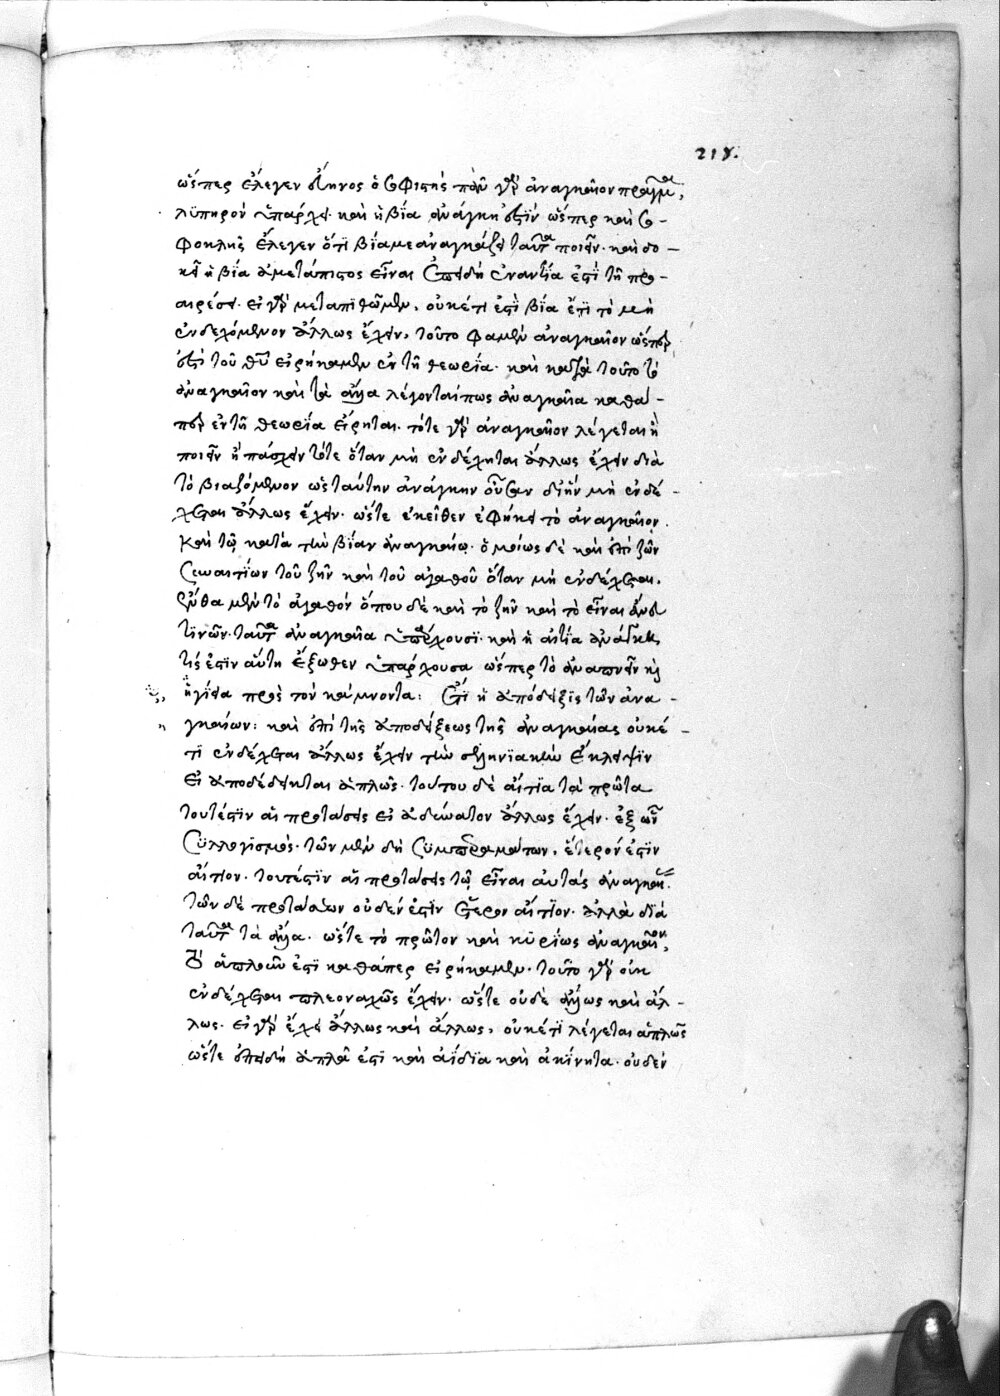 218.
ὥσπερ ἔλεγεν εὔηνος ὁ σοφιστής πᾶν γὰρ ἀναγκαῖον πρᾶγμα
λϋπηρὸν ὑπάρχει· καὶ ἡ βία ἀνάγκη ἐστὶν ὥσπερ καὶ σο-
φοκλῆς ἔλεγεν ὅτι βία με ἀναγκάζει ταῦτα ποιεῖν· καὶ δο-
κεῖ ἡ βία ἀμετάπιστος εἶναι ἐπειδὴ ἐναντία ἐστὶ τῇ προ-
αιρέσει· εἰ γὰρ μεταπιθῶμεν, οὐκέτι ἐστὶ βία ἔτι τὸ μὴ
ἐνδεχόμενον ἄλλως ἔχειν, τοῦτο φαμὲν ἀναγκαῖον ὥσπερ
ἐπὶ τοῦ θυ εἰρήκαμεν ἐν τῇ θεωρία· καὶ κατὰ τοῦτο τὸ
ἀναγκαῖον καὶ τὰ ἄλλα λέγονταί πως ἀναγκαῖα καθά-
περ ἐν τῇ θεωρία εἴρηται· τότε γὰρ ἀναγκαῖον λέγεται ἢ
ποιεῖν ἢ πάσχειν τότε ὅταν μὴ ἐνδέχηται ἄλλως ἔχειν διὰ
τὸ βιαζόμενον ὡς ταύτην ἀνάγκην οὖσαν δι ἣν μὴ ἐνδέ-
χεται ἄλλως ἔχειν· ὥστε ἐκεῖθεν ἐφήκει τὸ ἀναγκαῖον
καὶ τῷ κατὰ τὴν βίαν ἀναγκαίῳ· ὁμοίως δὲ καὶ ἐπὶ τῶν
συναιτίων τοῦ ζῆν καὶ τοῦ ἀγαθοῦ ὅταν μὴ ἐνδέχεται,
ἔνθα μὲν τὸ ἀγαθόν ὅπου δὲ καὶ τὸ ζῆν καὶ τὸ εἶναι ἄνευ
τινῶν· ταῦτα ἀναγκαῖα ὑπάρχουσι· καὶ ἡ αἰτία ἀνάγκη
τίς ἐστιν αὕτη ἔξωθεν ὑπάρχουσα ὥσπερ τὸ ἀναπνεῖν καὶ
ἡ γίεια πρὸς τὸν κάμνοντα: ἔτι ἡ ἀπόδειξις τῶν ἀνα-
γκαίων: καὶ ἐπὶ τῆς ἀποδείξεως τῆς ἀναγκαίας οὐκέ-
τι ἐνδέχεται ἄλλως ἔχειν τὴν σεληνιακὴν ἔκλειψιν
εἰ ἀποδέδεικται ἁπλῶς· τούτου δὲ αἴτια τὰ πρῶτα
τουτέστιν αἱ προτάσεις εἰ ἀδύνατον ἄλλως ἔχειν· ἐξ ὧν
συλλογισμός· τῶν μὲν δὴ συμπερασμάτων, ἕτερόν ἐστιν
αἴτιον· τουτέστιν αἱ προτάσεις τῷ εἶναι αὐτάς ἀναγκαίας.
τῶν δὲ προτάσεων οὐδέν ἐστιν ἕτερον αἴτιον· ἀλλὰ διὰ
ταῦτα τὰ ἄλλα· ὥστε τὸ πρῶτον καὶ κυρίως ἀναγκαῖον,
τὸ ἁπλοῦν ἐστι καθάπερ εἰρήκαμεν· τοῦτο γὰρ οὐκ
ἐνδέχεται πλεοναχῶς ἔχειν· ὥστε οὐδὲ ἄλλως καὶ ἄλ-
λως· εἰ γὰρ ἔχει ἄλλως καὶ ἄλλως, οὐκέτι λέγεται ἁπλῶς
ὥστε ἐπειδὴ ἁπλᾶ ἐστι καὶ ἀΐδια καὶ ἀκίνητα· οὐδέν